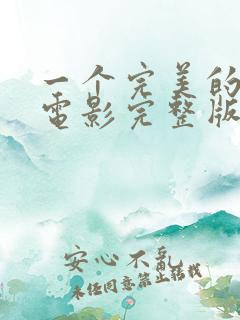 一个完美的
电影完整版
安心不乱
未经同意禁止转载